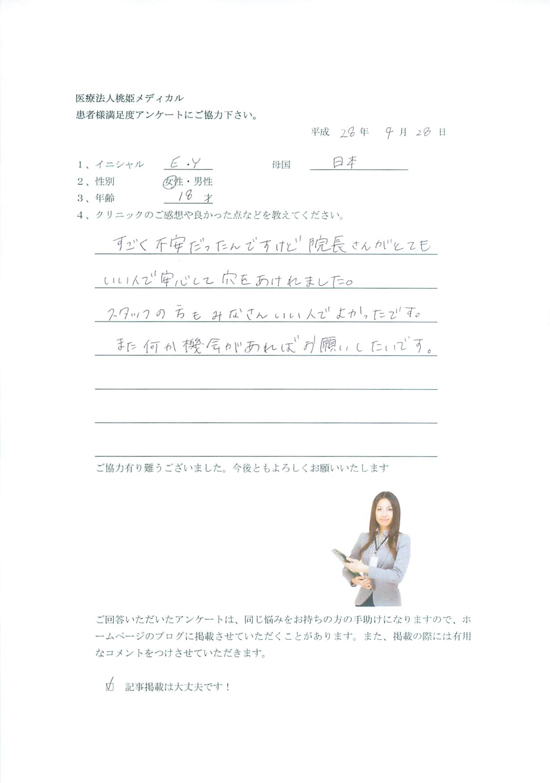 医療法人桃姫メディカル
患者様満足度アンケートにご協力下さい。
平成 28 年 9 月 28 日
1、イニシャル E・Y 母国 日本
2、性別 女性・男性
3、年齢 18 才
4、クリニックのご感想や良かった点などを教えてください。
すごく不安だったんですけど院長さんがとても
いい人で安心して穴をあけれました。
スタッフの方もみなさんいい人でよかったです。
また何か機会があればお願いしたいです。
ご協力有り難うございました。今後ともよろしくお願いいたします
ご回答いただいたアンケートは、同じ悩みをお持ちの方の手助けになりますので、ホ
ームページのブログに掲載させていただくことがあります。また、掲載の際には有用
なコメントをつけさせていただきます。
☑ 記事掲載は大丈夫です！